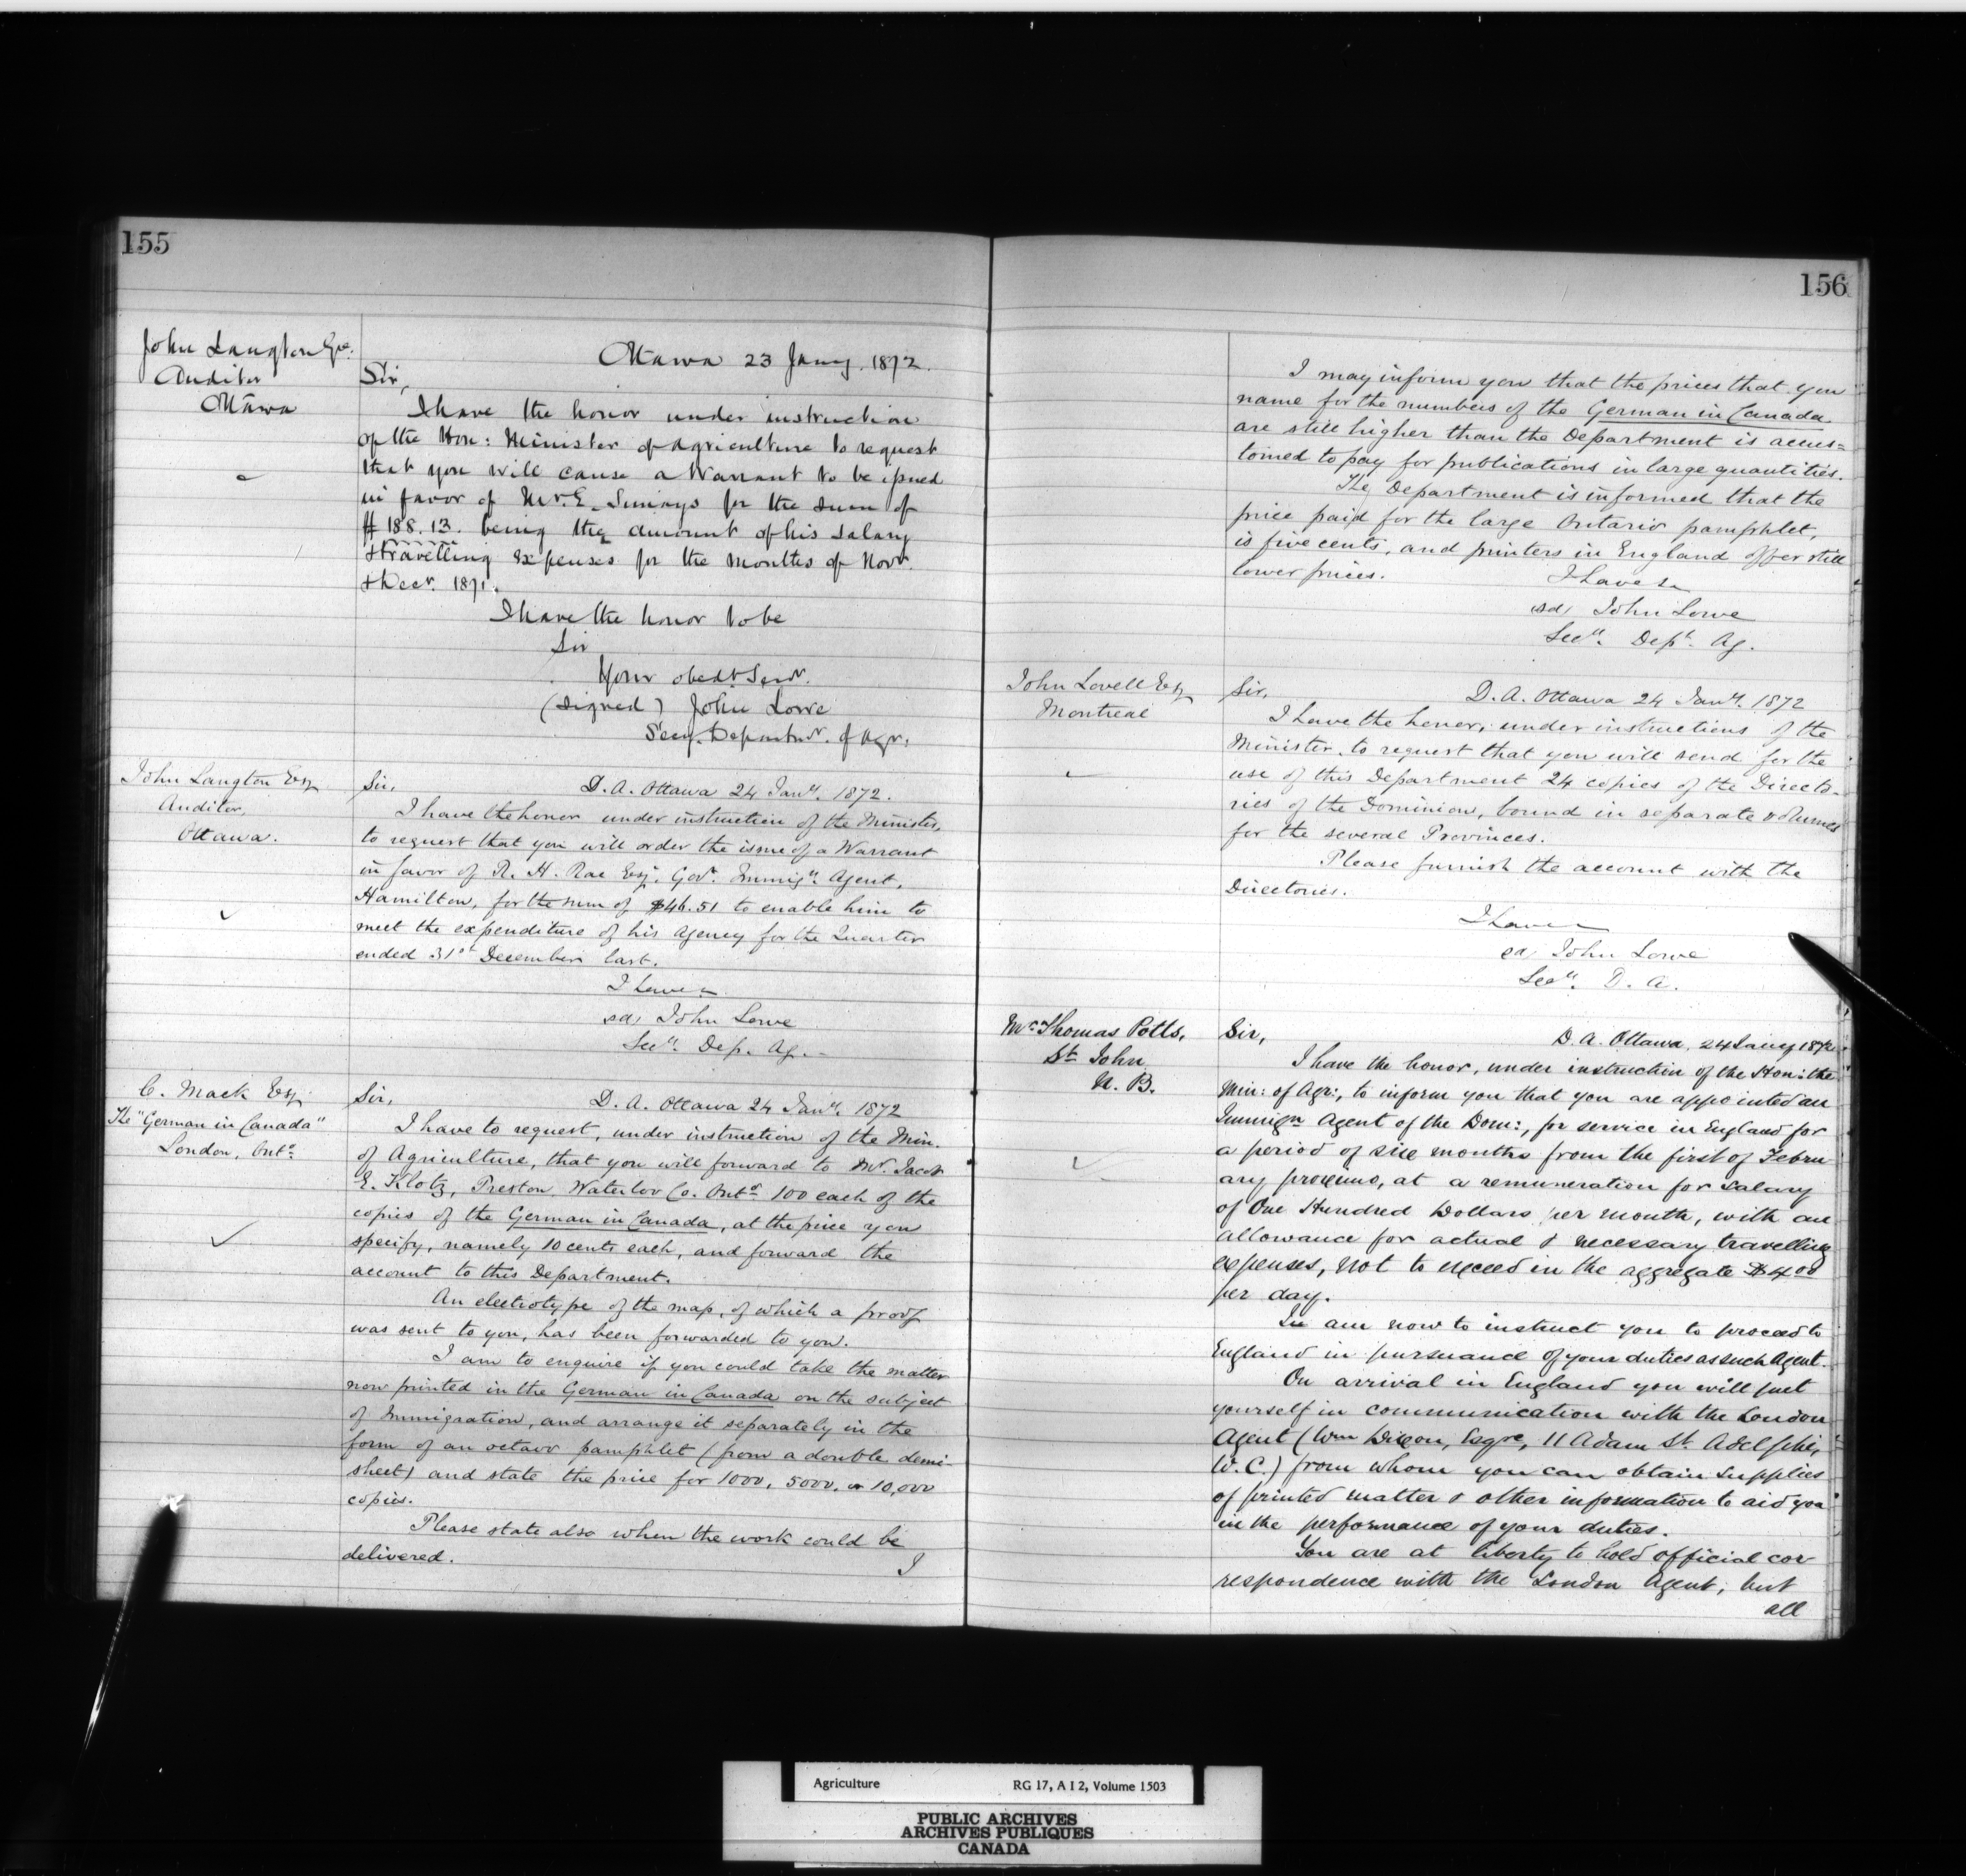 155
John Langton Esqe.
Auditor
Ottawa
Ottawa 23 Jany. 1872.
Sir,
I have the honor under instruction
of the Hon: Minister of Agriculture to request
that you will cause a Warrant to be issued
in favor of Mr. E. Simays for the sum of
$188.13. being the amount of his Salary
& travelling expenses for the months of Novr.
& Decr. 1871.
I have the honor to be
Sir
Your obedt Servt.
(signed) John Lowe
Secy. Departmt. of Agr:
John Langton Esq
Auditor,
Ottawa.
Sir,
D. A. Ottawa 24 Jany. 1872.
I have the honor under instruction of the Minister,
to request that you will order the issue of a Warrant
in favor of R. H. Rae Esq. Govt. Immign. Agent,
Hamilton, for the sum of $46.51 to enable him to
meet the expenditure of his Agency for the Quarter
ended 31st December last.
I have
sd, John Lowe
Secy. Dep. Ag.
C. Mack Esq
The "German in Canada"
London, Onto.
Sir,
D. A. Ottawa 24 Jany. 1872
I have to request, under instruction of the Min.
of Agriculture, that you will forward to Mr. Jacob
E. Klotz, Preston, Waterloo Co. Onto. 100 each of the
copies of the German in Canada, at the price you
specify, namely 10 cents each, and forward the
account to this Department.
An electrotype of the map, of which a proof
was sent to you, has been forwarded to you.
I am to enquire if you could take the matter
now printed in the German in Canada on the subject
of Immigration, and arrange it separately in the
form of an octavo pamphlet (from a double demi-
sheet) and state the price for 1000, 5000, or 10,000
copies.
Please state also when the work could be
delivered.
I
156
I may inform you that the prices that you
name for the numbers of the German in Canada
are still higher than the Department is accus=
tomed to pay for publications in large quantities.
The Department is informed that the
price paid for the large Ontario pamphlet,
is five cents, and printers in England offer still
lower prices.
I have
sd, John Lowe
Secy. Dept. Ag.
John Lovell Esq
Montreal
Sir,
D. A. Ottawa 24 Jany. 1872
I have the honor, under instructions of the
Minister, to request that you will send for the
use of this Department 24 copies of the Directo-
ries of the Dominion, bound in separate volumes
for the several Provinces.
Please furnish the account with the
Directories.
I have
sd, John Lowe
Secy. D. A.
Mr. Thomas Potts,
St. John
N. B.
Sir,
D. A. Ottawa, 24 Jany 1872
I have the honor, under instruction of the Hon: the
Min: of Agr:, to inform you that you are appointed an
Immign. Agent of the Dom:, for service in England for
a period of six months from the first of Febru-
ary proximo, at a remuneration for salary
of One Hundred Dollars per month, with an
allowance for actual & necessary travelling
expenses, not to exceed in the aggregate $4 00
per day.
I am now to instruct you to proceed to
England in pursuance of your duties as such Agent.
On arrival in England you will put
yourself in communication with the London
Agent (Wm Dixon, Esqre, 11 Adam St. Adelphi,
W.C.) from whom you can obtain supplies
of printed matter & other information to aid you
in the performance of your duties.
You are at liberty to hold official cor-
respondence with the London Agent, but
all
Agriculture RG 17, A I 2, Volume 1503
PUBLIC ARCHIVES
ARCHIVES PUBLIQUES
CANADA